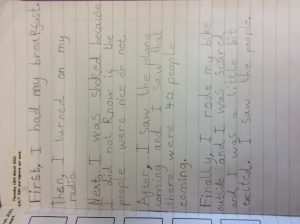 First, I had my breakfast.
Then, I turned on my
radio.
Next, I was shoked because
I did not know if the
people were nice or not.
After, I saw the plane
coming and I saw that
there were 40 people
coming.
Finally, I rode my bike
outside and I was scared
and I was a little bit
excited. I saw the people.